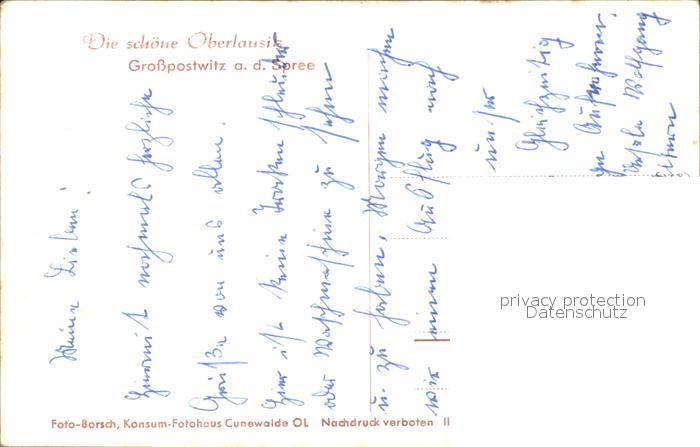 Die schöne Oberlausitz
Großpostwitz a. d. Spree
Meine Lieben!
Hiermit nochmals herzliche
Grüße von uns allen.
Hier ist keine Trocken schleuder
oder Waschmaschine zu sehen
u. zu haben, Morgen machen
wir einen Ausflug nach
unser
Gleichzeitig
Wolfgang
Eltern
privacy protection
Datenschutz
Foto-Borsch, Konsum-Fotohaus Cunewalde OL Nachdruck verboten II